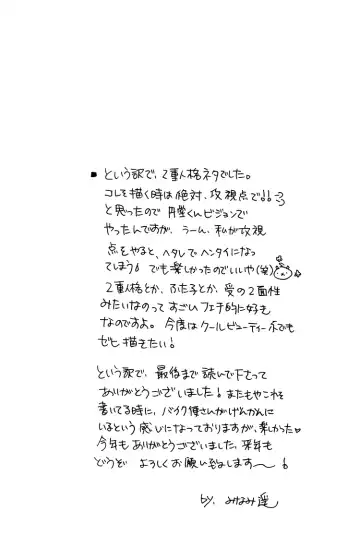 ■ という訳で、2重人格ネタでした。
コレを描く時は絶対、攻視点で!!
と思ったので 円堂くんビジョンで
やったんですが、うーん、私が攻視
点をやると、ヘタレでヘンタイになっ
てしまう でも楽しかったのでいいや(笑)
2重人格とか、ふた子とか、受の2面性
みたいなのって すごいフェチ的に好き
なのですよ。今度はクールビューティーネタでも
ゼヒ描きたい!
という訳で、最後まで読んで下さって
ありがとうございました! またもやこれを
書いてる時に、バイク便さんがげんかんに
いるという感じになっておりますが、楽しかった
今年もありがとうございました、来年も
どうぞ よろしくお願い致します〜
by. みなみ遥